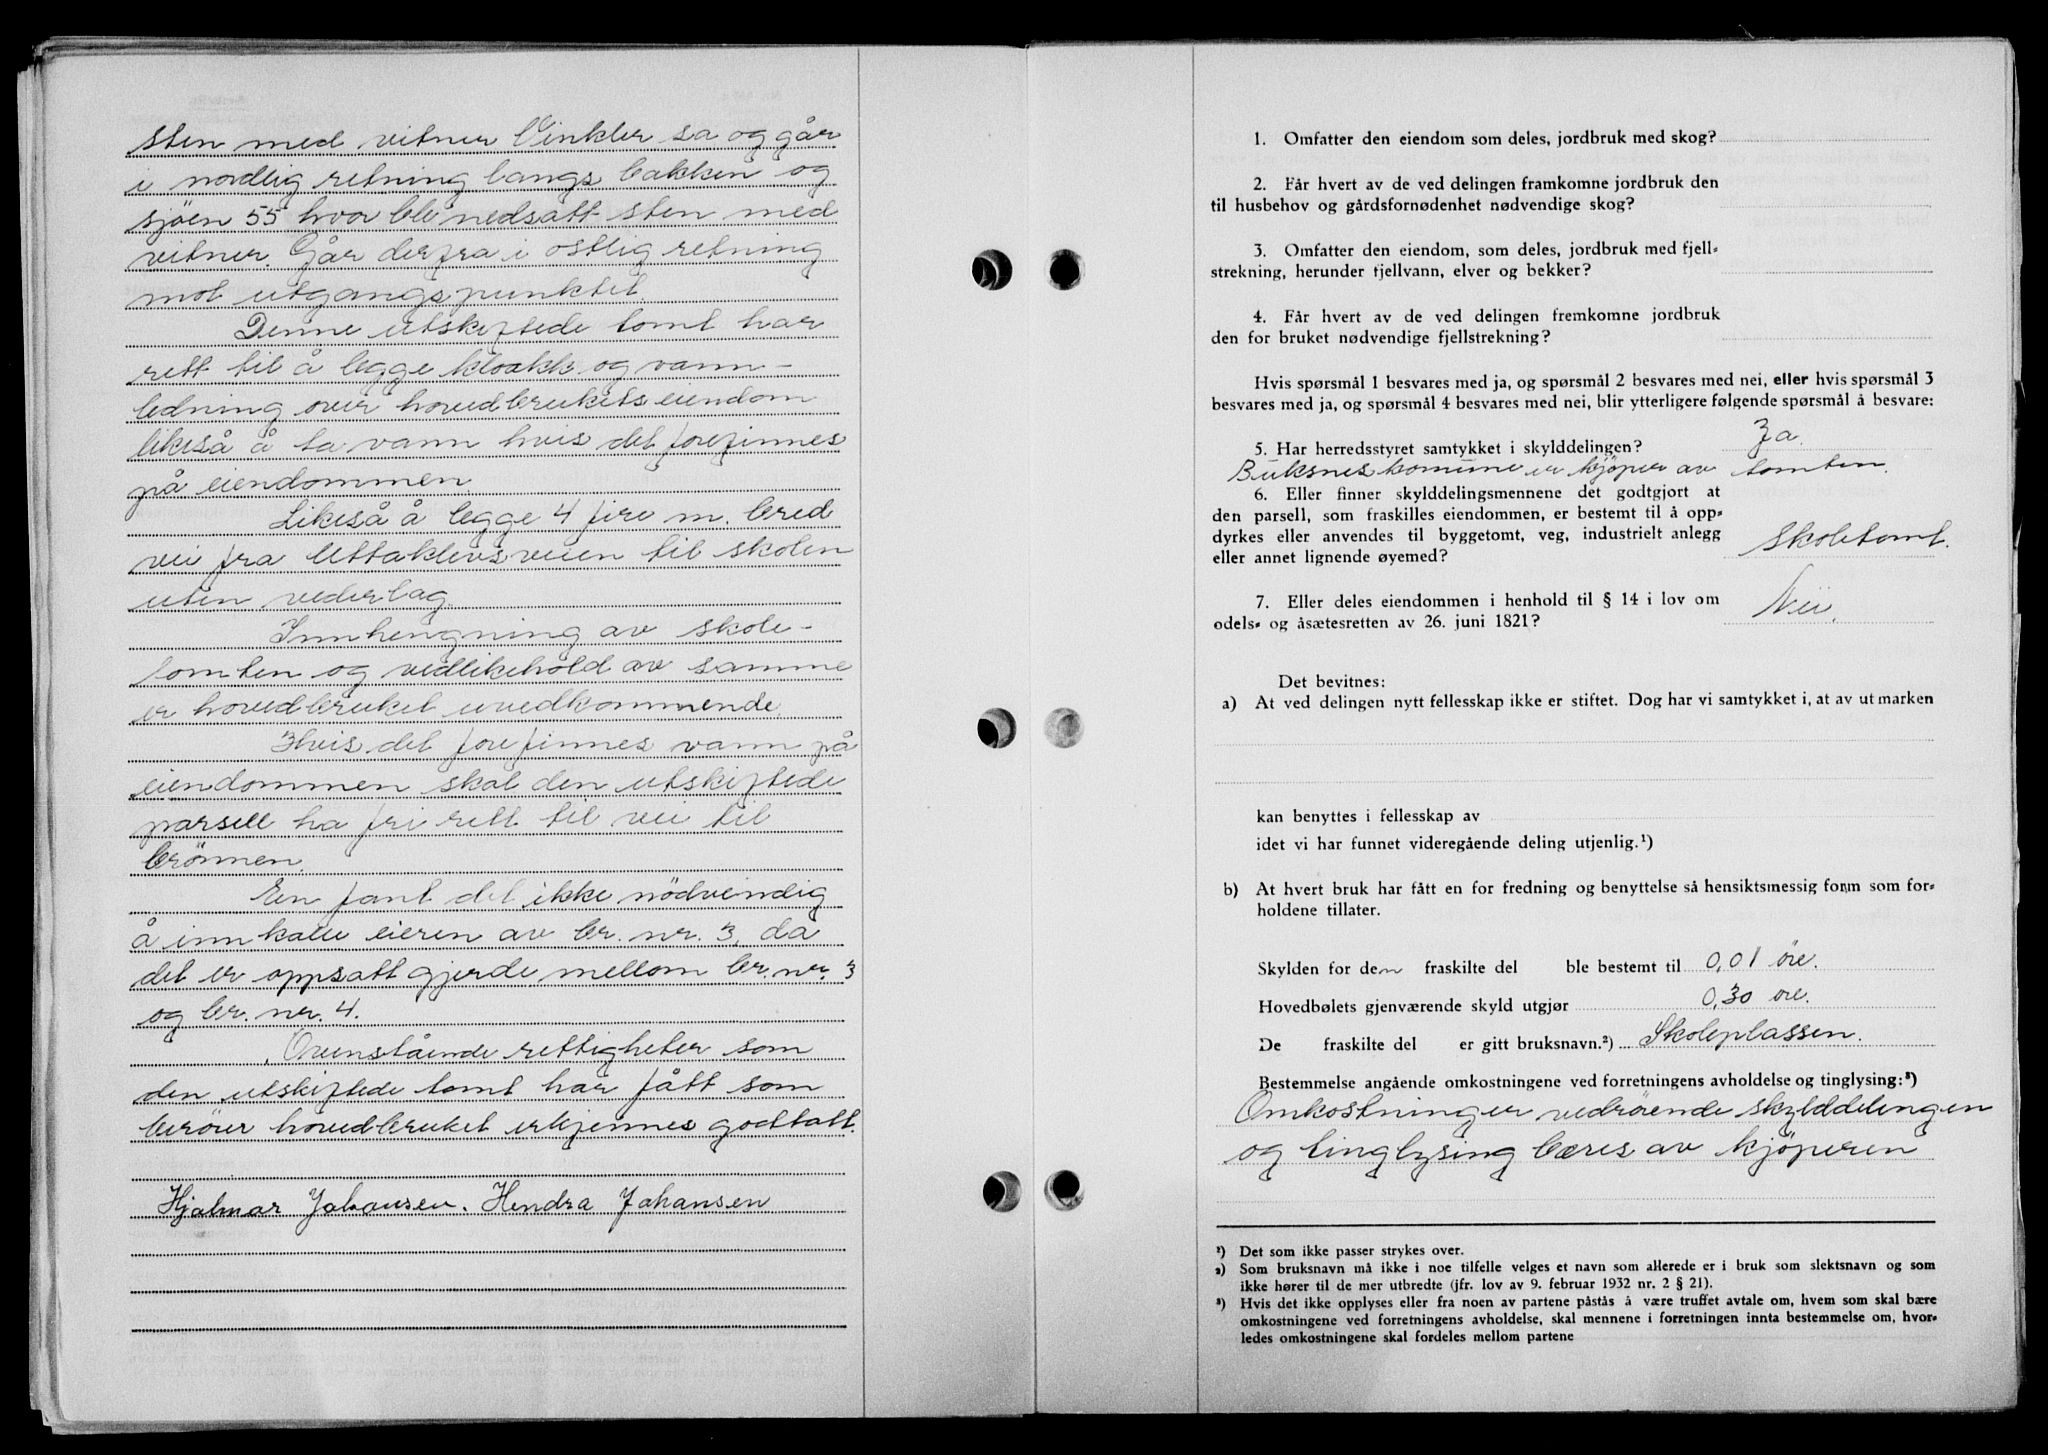 sten med vitner Vinkler sa og går
i nordlig retning langs bakken og
sjöen 55 hvor ble nedsatt sten med
vitner. Går derfra i östlig retning
mot utgangspunktet.
Denne utskiftede tomt har
rett til å legge kloakk og vann-
ledning over hovedbrukets eiendom
likeså å ta vann hvis det forefinnes
på eiendommen.
Likeså å legge 4 fire m. bred
vei fra Uttakleivsveien til skolen
uten vederlag.
Innhengning av skole-
tomten og vedlikehold av samme
er hovedbruket uvedkommende.
Hvis det forefinnes vann på
eiendommen skal den utskiftede
parsell ha fri rett til vei til
brönnen.
En fant det ikke nödvendig
å innkalle eieren av br. nr. 3, da
det er oppsatt gjerde mellom br. nr. 3
og br. nr. 4.
Ovenstående rettigheter som
den utskiftede tomt har fått som
berörer hovedbruket erkjennes godtatt.
Hjalmar Johansen. Hendra Johansen
1. Omfatter den eiendom som deles, jordbruk med skog?
2. Får hvert av de ved delingen framkomne jordbruk den
til husbehov og gårdsfornødenhet nødvendige skog?
3. Omfatter den eiendom, som deles, jordbruk med fjell-
strekning, herunder fjellvann, elver og bekker?
4. Får hvert av de ved delingen fremkomne jordbruk
den for bruket nødvendige fjellstrekning?
Hvis spørsmål 1 besvares med ja, og spørsmål 2 besvares med nei, eller hvis spørsmål 3
besvares med ja, og spørsmål 4 besvares med nei, blir ytterligere følgende spørsmål å besvare:
5. Har herredsstyret samtykket i skylddelingen? Ja.
Buksnes komune er kjöper av tomten.
6. Eller finner skylddelingsmennene det godtgjort at
den parsell, som fraskilles eiendommen, er bestemt til å opp-
dyrkes eller anvendes til byggetomt, veg, industrielt anlegg
eller annet lignende øyemed? Skoletomt.
7. Eller deles eiendommen i henhold til § 14 i lov om
odels- og åsætesretten av 26. juni 1821? Nei.
Det bevitnes:
a) At ved delingen nytt fellesskap ikke er stiftet. Dog har vi samtykket i, at av utmarken
kan benyttes i fellesskap av
idet vi har funnet videregående deling utjenlig.¹)
b) At hvert bruk har fått en for fredning og benyttelse så hensiktsmessig form som for-
holdene tillater.
Skylden for den fraskilte del ble bestemt til 0,01 öre.
Hovedbølets gjenværende skyld utgjør 0,30 öre.
De fraskilte del er gitt bruksnavn.²) Skoleplassen.
Bestemmelse angående omkostningene ved forretningens avholdelse og tinglysing:³)
Omkostninger vedröende skylddelingen
og tinglysing bæres av kjöperen
¹) Det som ikke passer strykes over.
²) Som bruksnavn må ikke i noe tilfelle velges et navn som allerede er i bruk som slektsnavn og som
ikke hører til de mer utbredte (jfr. lov av 9. februar 1932 nr. 2 § 21).
³) Hvis det ikke opplyses eller fra noen av partene påstås å være truffet avtale om, hvem som skal bære
omkostningene ved forretningens avholdelse, skal mennene i forretningen innta bestemmelse om, hvor-
ledes omkostningene skal fordeles mellom partene